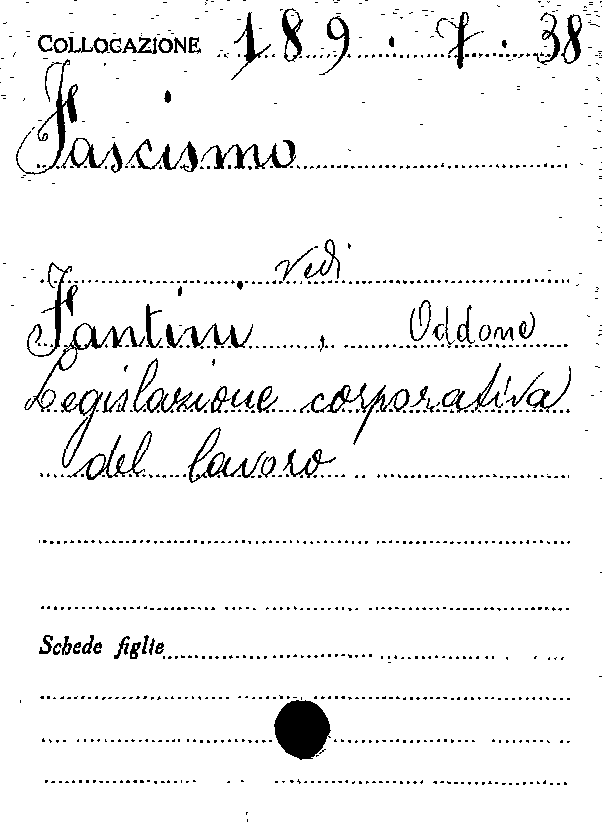 COLLOCAZIONE 189.7.38
Fascismo
Vedi
Fantini, Oddone
Legislazione corporativa
del lavoro
Schede figlie